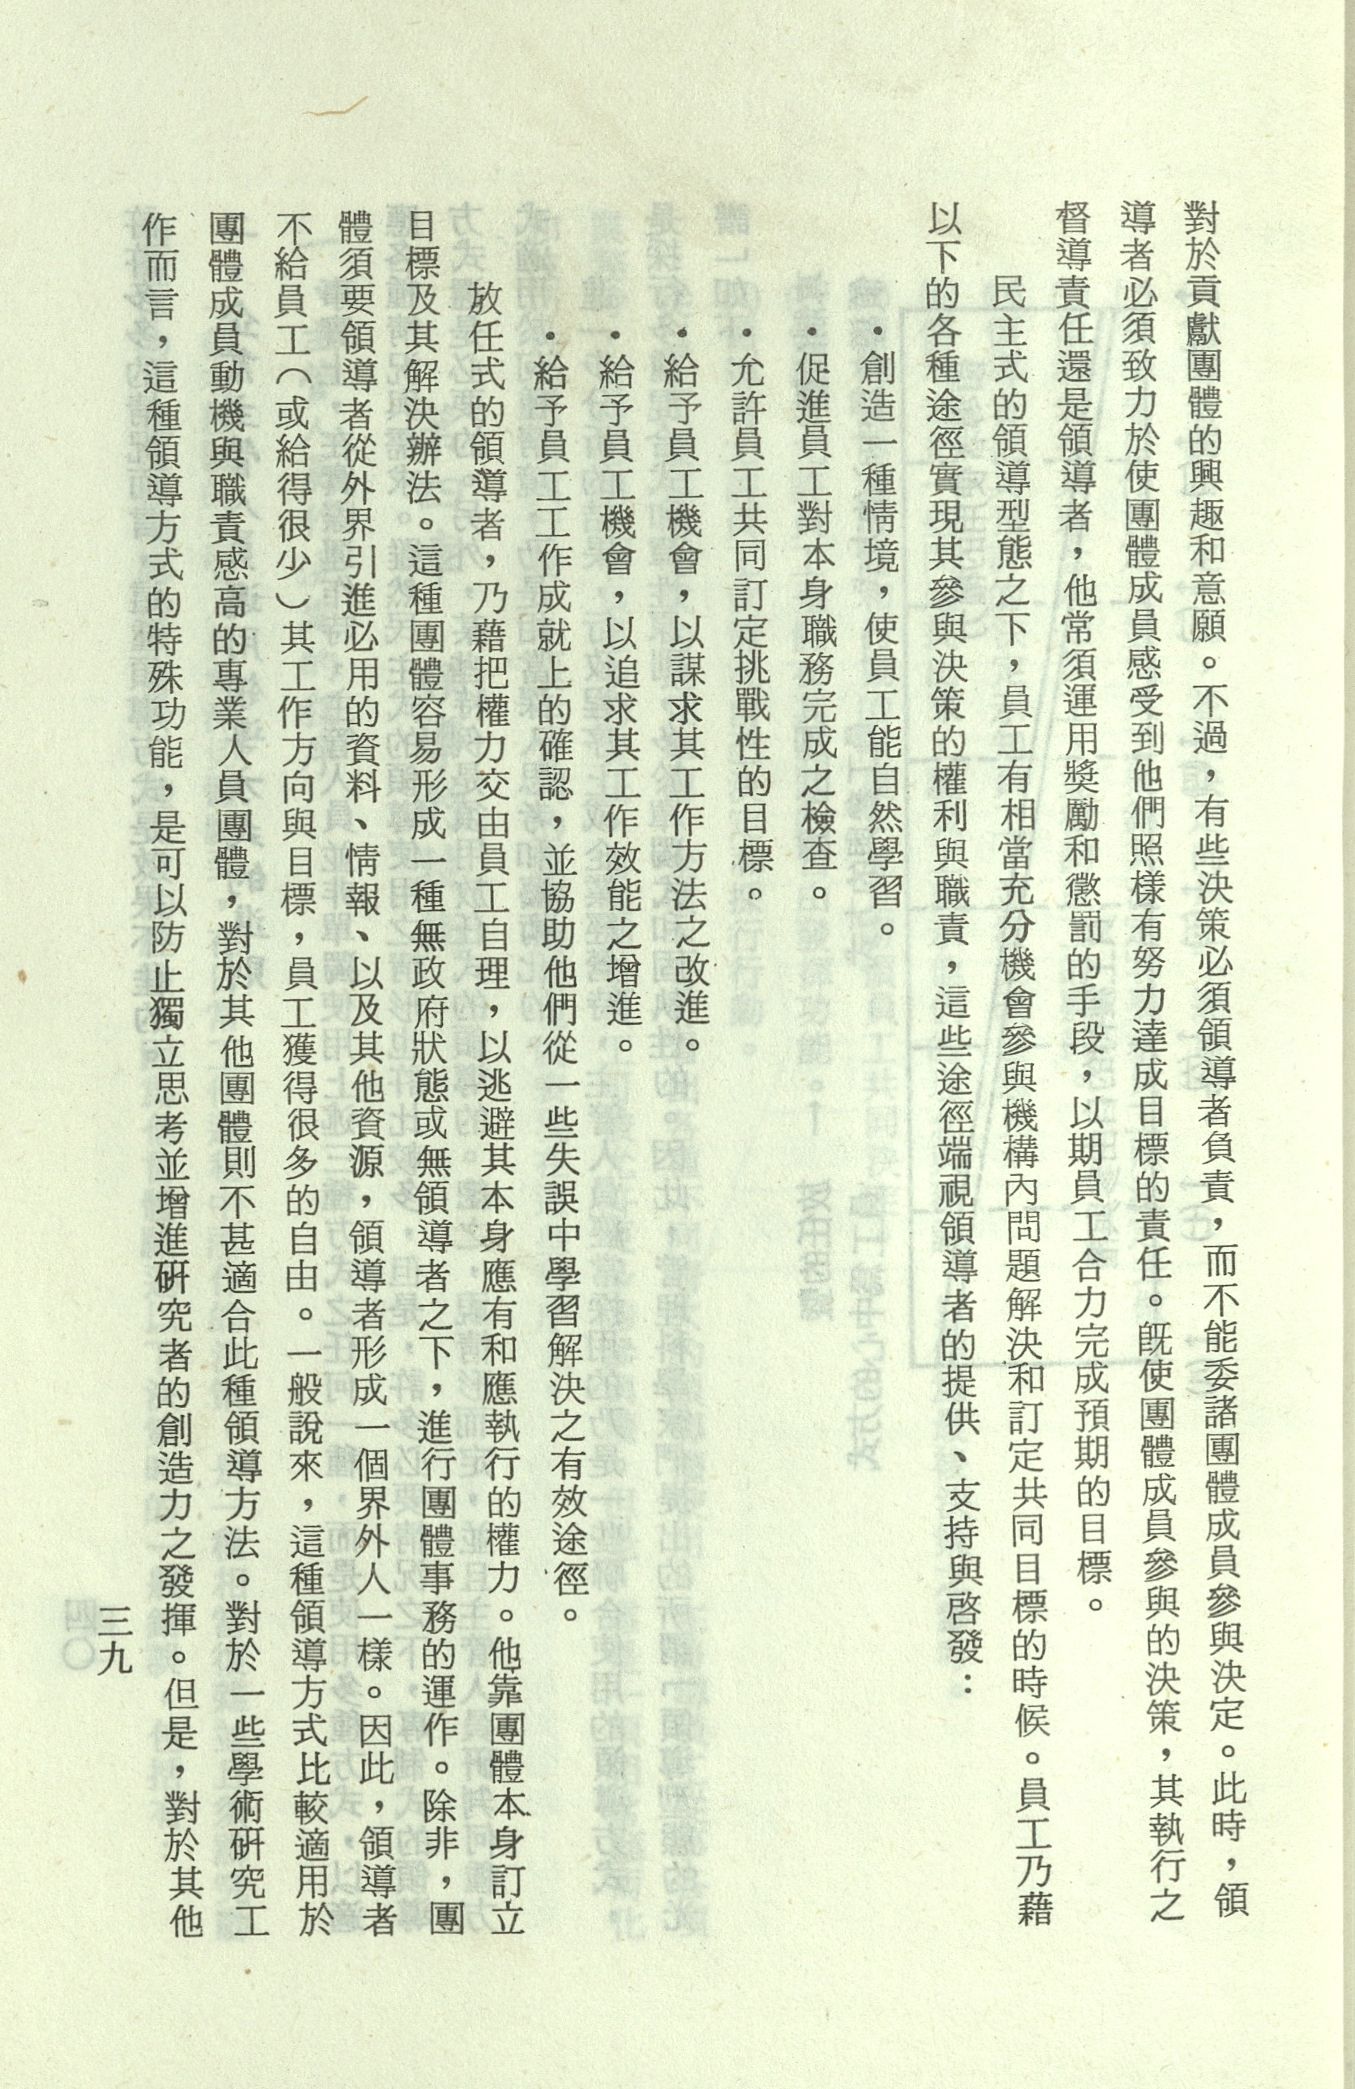 對於貢獻團體的興趣和意願。不過，有些決策必須領導者負責，而不能委諸團體成員參與決定。此時，領
導者必須致力於使團體成員感受到他們照樣有努力達成目標的責任。旣使團體成員參與的決策，其執行之
督導責任還是領導者，他常須運用獎勵和懲罰的手段，以期員工合力完成預期的目標。
民主式的領導型態之下，員工有相當充分機會參與機構內問題解決和訂定共同目標的時候。員工乃藉
以下的各種途徑實現其參與決策的權利與職責，這些途徑端視領導者的提供、支持與啓發：
・創造一種情境，使員工能自然學習。
・促進員工對本身職務完成之檢查。
・允許員工共同訂定挑戰性的目標。
・給予員工機會，以謀求其工作方法之改進。
・給予員工機會，以追求其工作效能之增進。
・給予員工工作成就上的確認，並協助他們從一些失誤中學習解決之有效途徑。
放任式的領導者，乃藉把權力交由員工自理，以逃避其本身應有和應執行的權力。他靠團體本身訂立
目標及其解決辦法。這種團體容易形成一種無政府狀態或無領導者之下，進行團體事務的運作。除非，團
體須要領導者從外界引進必用的資料、情報、以及其他資源，領導者形成一個界外人一樣。因此，領導者
不給員工（或給得很少）其工作方向與目標，員工獲得很多的自由。一般說來，這種領導方式比較適用於
團體成員動機與職責感高的專業人員團體，對於其他團體則不甚適合此種領導方法。對於一些學術硏究工
作而言，這種領導方式的特殊功能，是可以防止獨立思考並增進硏究者的創造力之發揮。但是，對於其他
三九